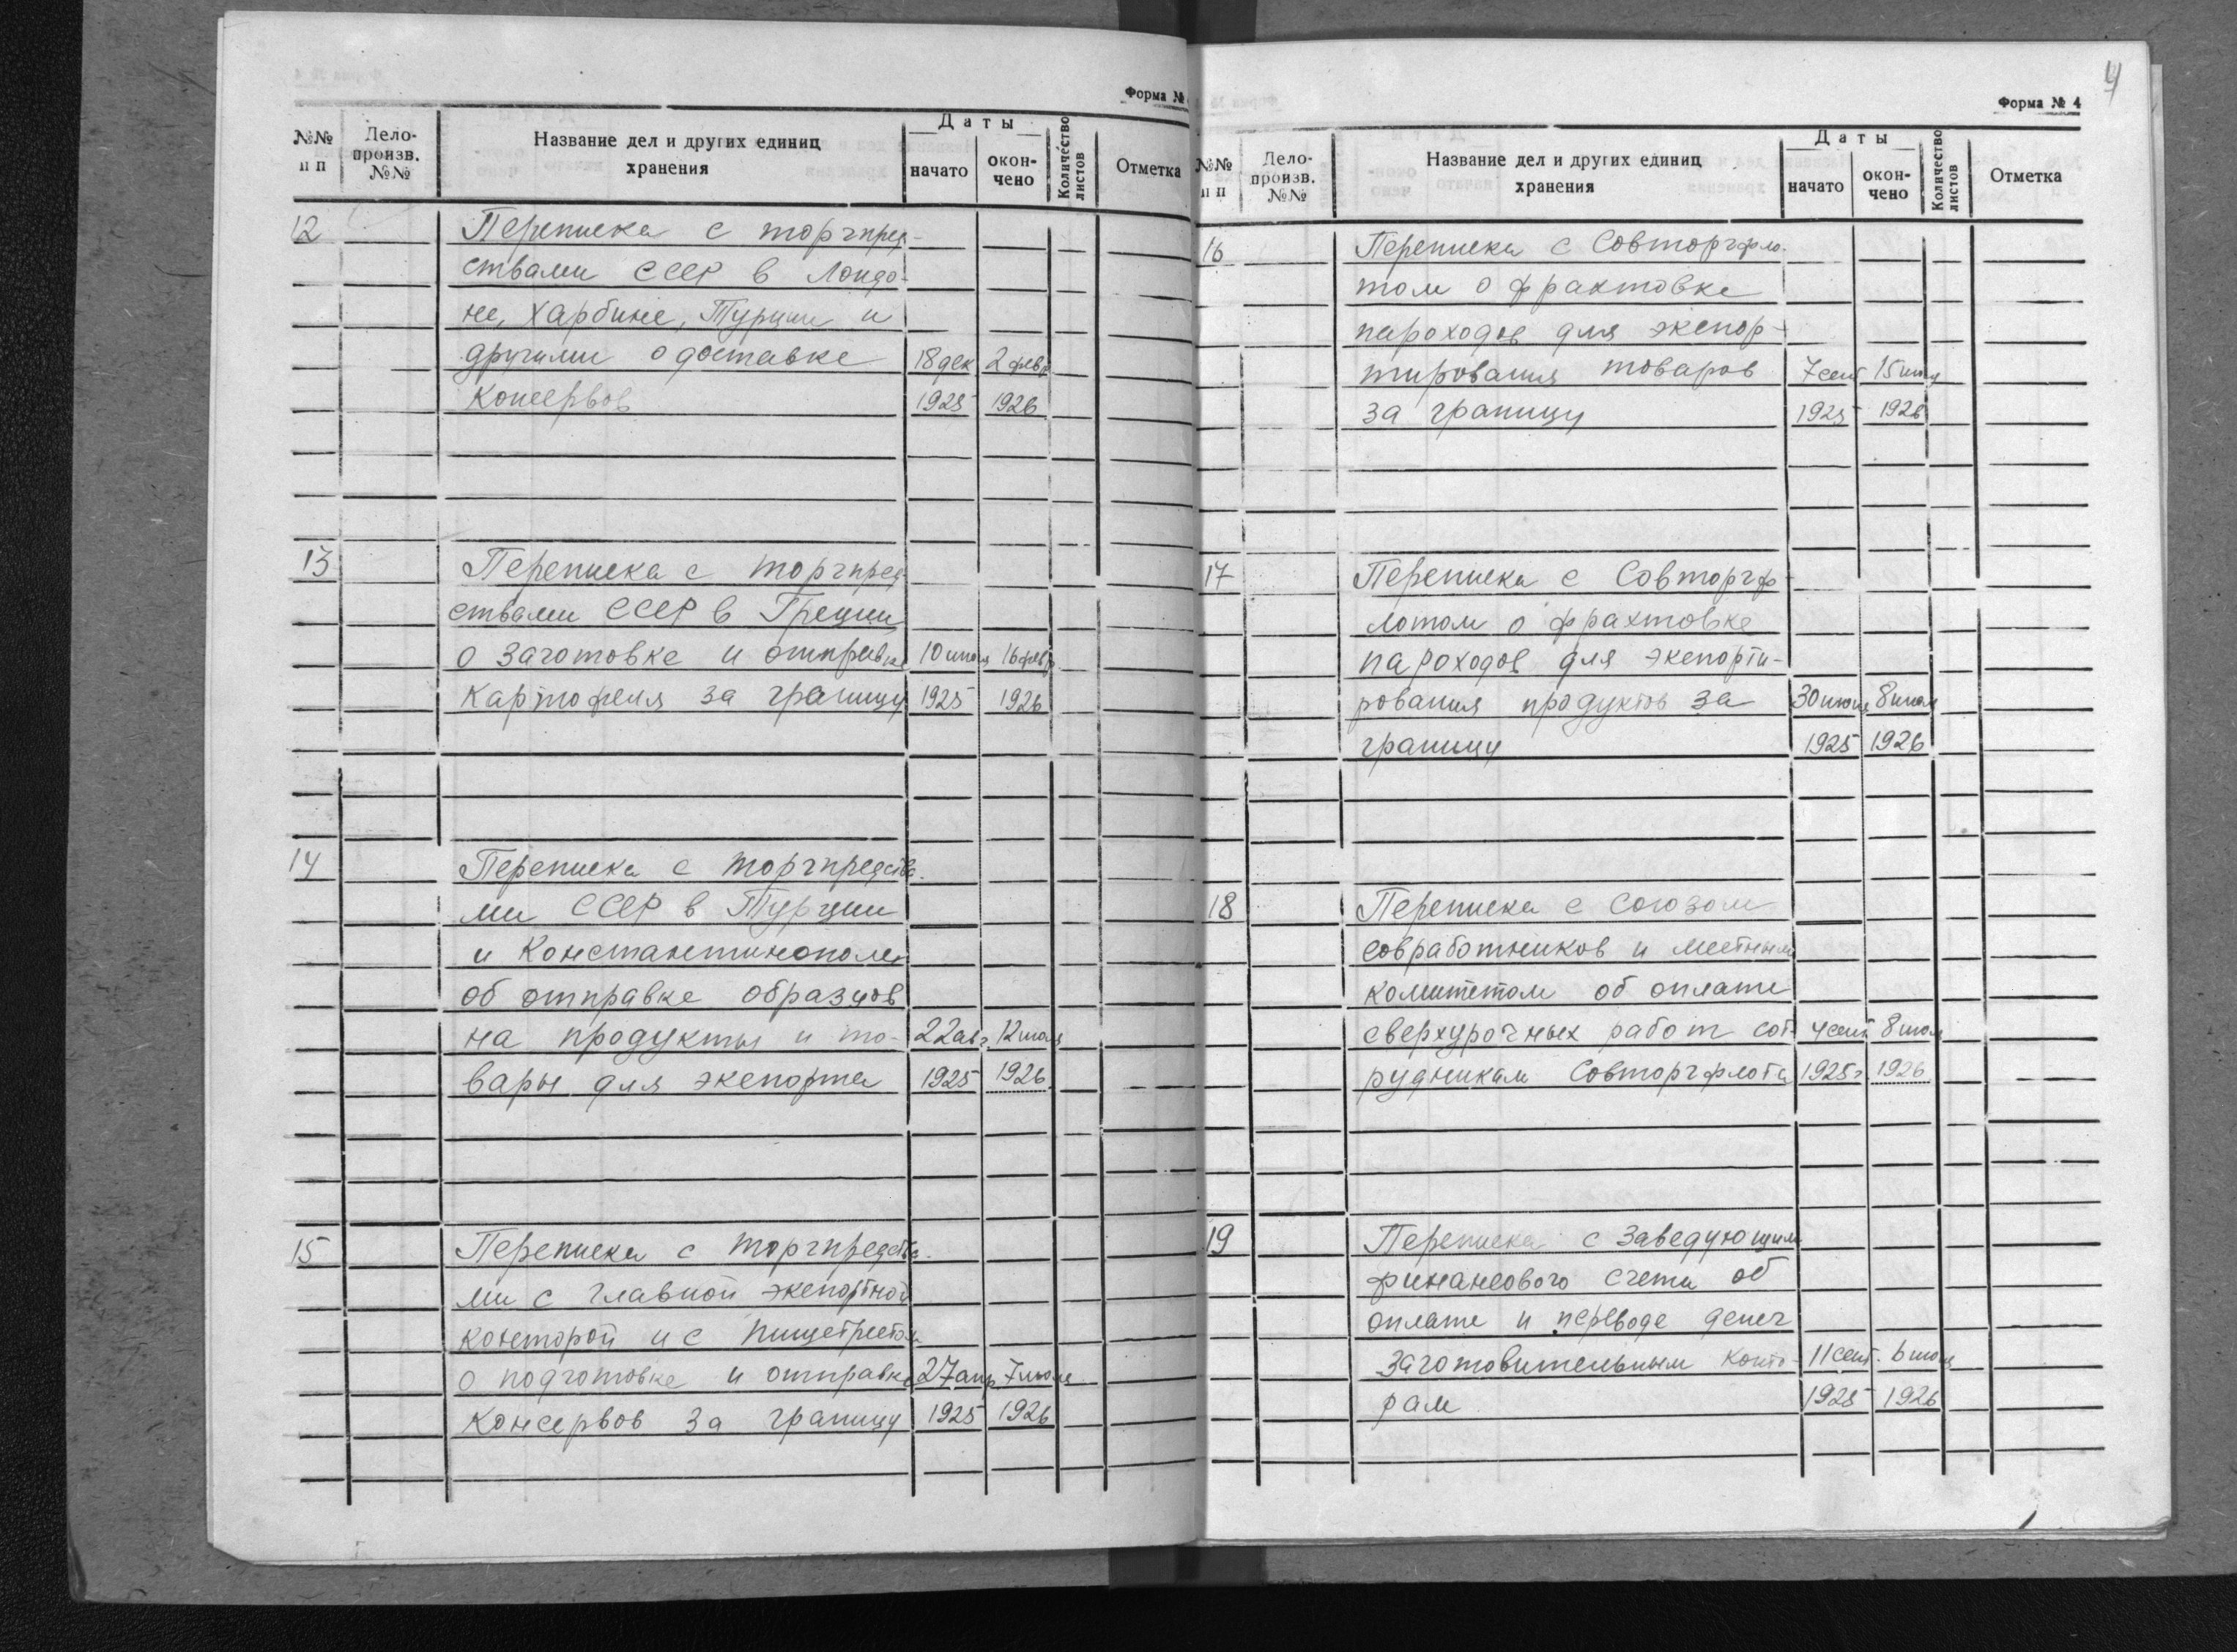 Форма №
№№ п п
Дело-произв. №№
Название дел и других единиц хранения
Даты
начато
окон-чено
Количество листов
Отметка
12 Переписка с торгпред-
ствами СССР в Лондо-
не, Харбине, Турции и
другими о доставке 18 дек 2 февр
консервов 1925 1926
13 Переписка с торгпред-
ствами СССР в Греции
о заготовке и отправке 10 июля 16 февр
картофеля за границу 1925 1926
14 Переписка с торгпредства-
ми СССР в Турции
и Константинополе
об отправке образцов
на продукты и то- 22 авг. 12 июля
вары для экспорта 1925 1926
15 Переписка с торгпредства-
ми с главной экспортной
конторой и с Пищетрестом
о подготовке и отправке 27 апр 7 июля
консервов за границу 1925 1926
4
Форма № 4
№№ п п
Дело-произв. №№
Название дел и других единиц хранения
Даты
начато
окон-чено
Количество листов
Отметка
16 Переписка с Совторгфло-
том о фрахтовке
пароходов для экспор-
тирования товаров 7 сент 15
за границу 1925 1926
17 Переписка с Совторгф-
лотом о фрахтовке
пароходов для экспорти-
рования продуктов за 30 июня 8 июля
границу 1925 1926
18 Переписка с Союзом
совработников и местным
комитетом об оплате
сверхурочных работ сот- 4 сент 8 июля
рудникам Совторгфлота 1925 г 1926
19 Переписка с заведующим
финансового счета об
оплате и переводе денег
заготовительным конто- 11 сент. 6
рам 1925 1926